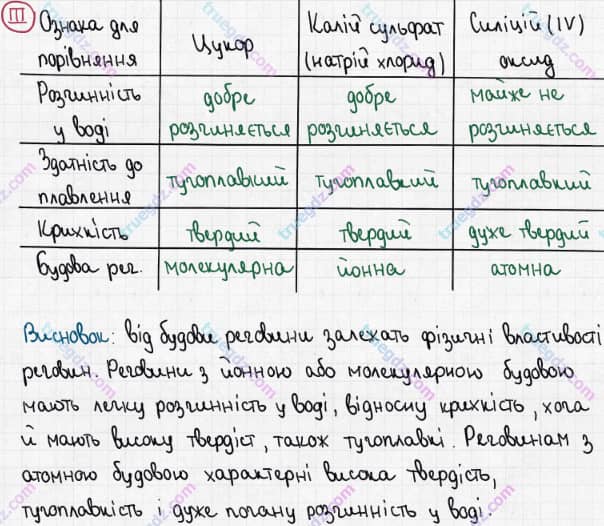 III
Ознака для порівняння | Цукор | Калій сульфат (натрій хлорид) | Силіцій (IV) оксид
Розчинність у воді | добре розчиняється | добре розчиняється | майже не розчиняється
Здатність до плавлення | тугоплавкий | тугоплавкий | тугоплавкий
Крихкість | твердий | твердий | дуже твердий
Будова реч. | молекулярна | йонна | атомна
Висновок: від будови речовини залежать фізичні властивості
речовин. Речовини з йонною або молекулярною будовою
мають легку розчинність у воді, відносну крихкість, хоча
й мають високу твердіст, також тугоплавкі. Речовинам з
атомною будовою характерні висока твердість,
тугоплавкість і дуже погану розчинність у воді.
truegdz.com